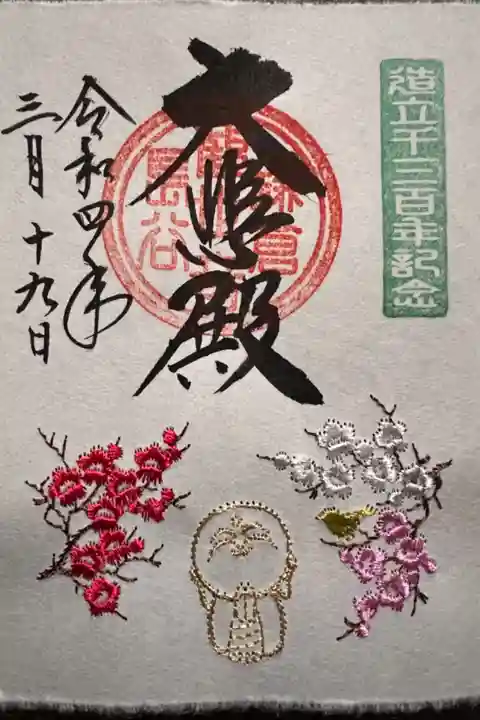 造立千三百年記念
大悲殿
鎌倉
長谷
令和四年
三月十九日